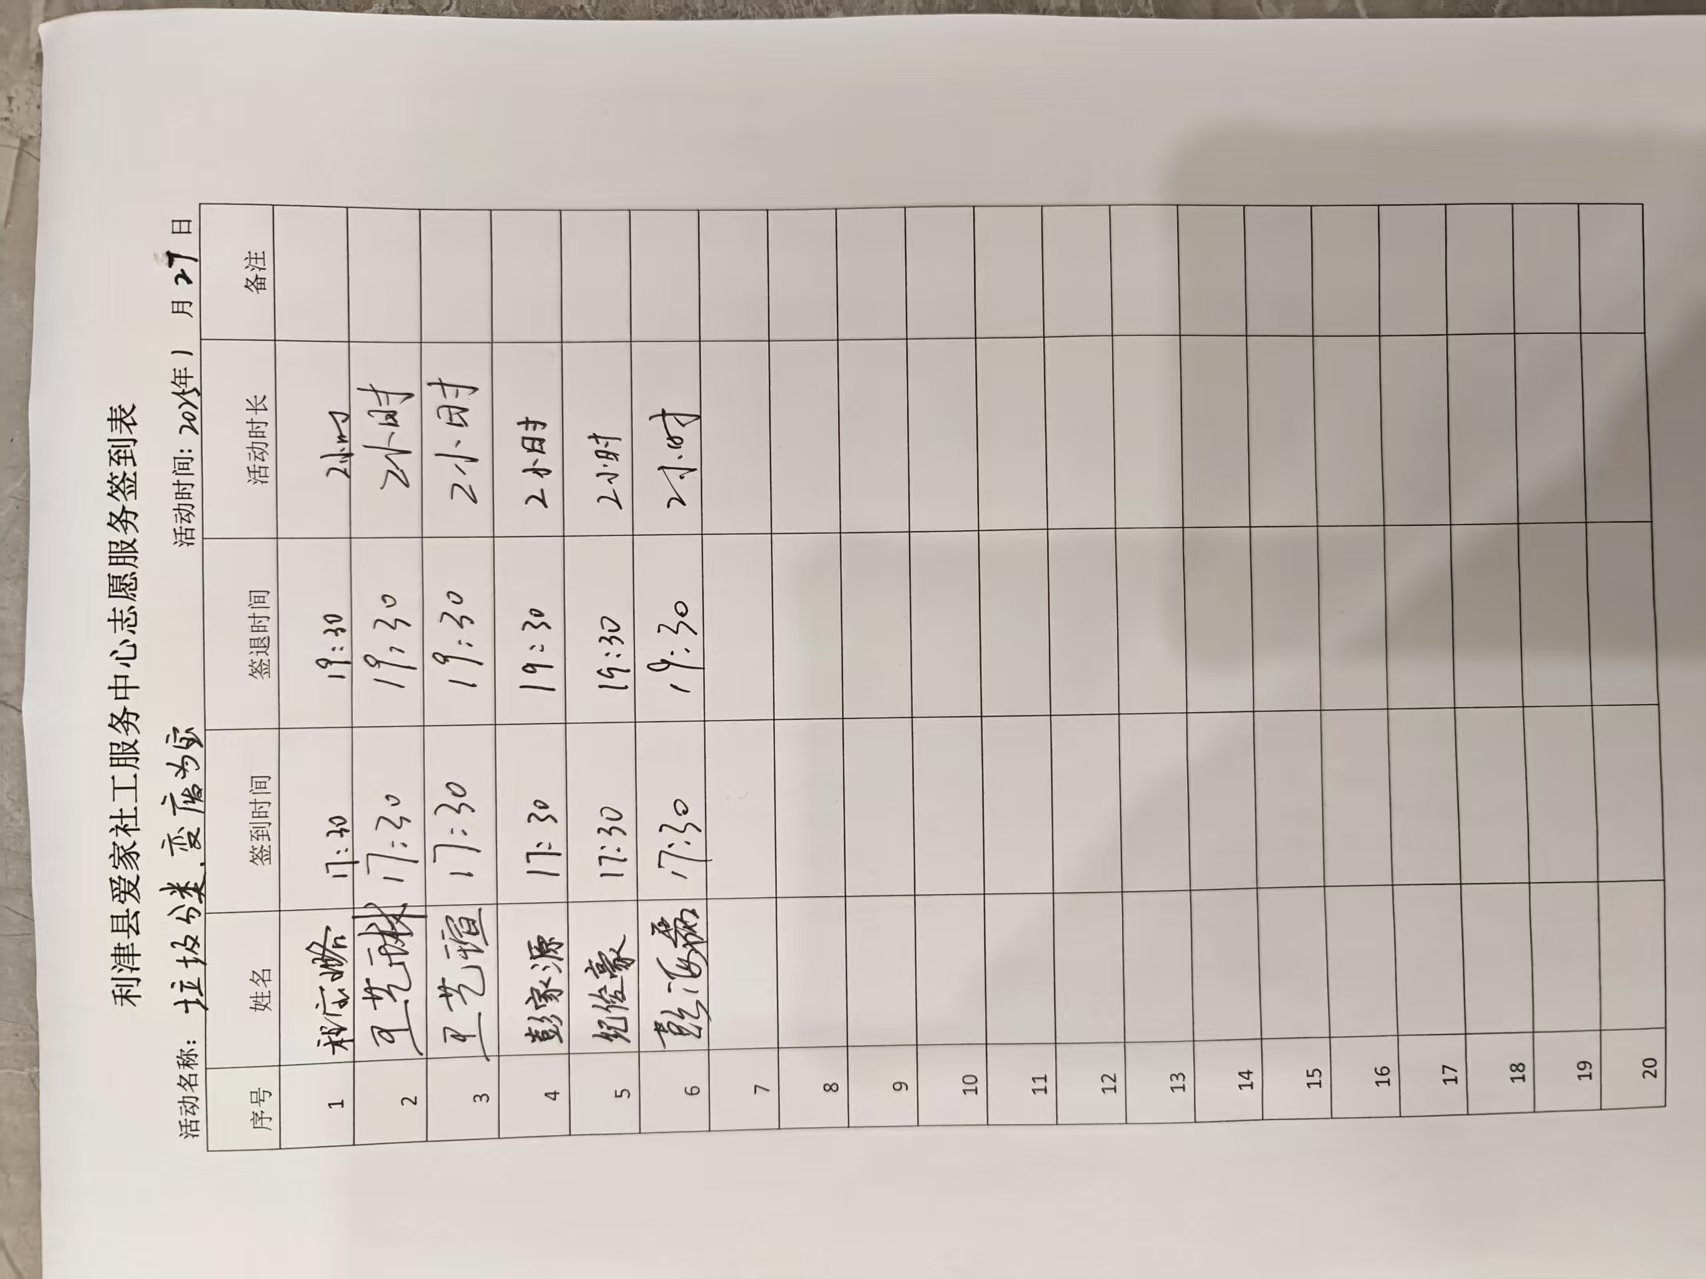 利津县爱家社工服务中心志愿服务签到表
活动名称: 垃圾分类,变废为宝 活动时间: 2025年1月27日
序号 姓名 签到时间 签退时间 活动时长 备注
1 17:30 19:30 2小时
2 王艺琳 17:30 19:30 2小时
3 王艺瑄 17:30 19:30 2小时
4 彭家源 17:30 19:30 2小时
5 纪俊豪 17:30 19:30 2小时
6 彭海磊 17:30 19:30 2小时
7
8
9
10
11
12
13
14
15
16
17
18
19
20